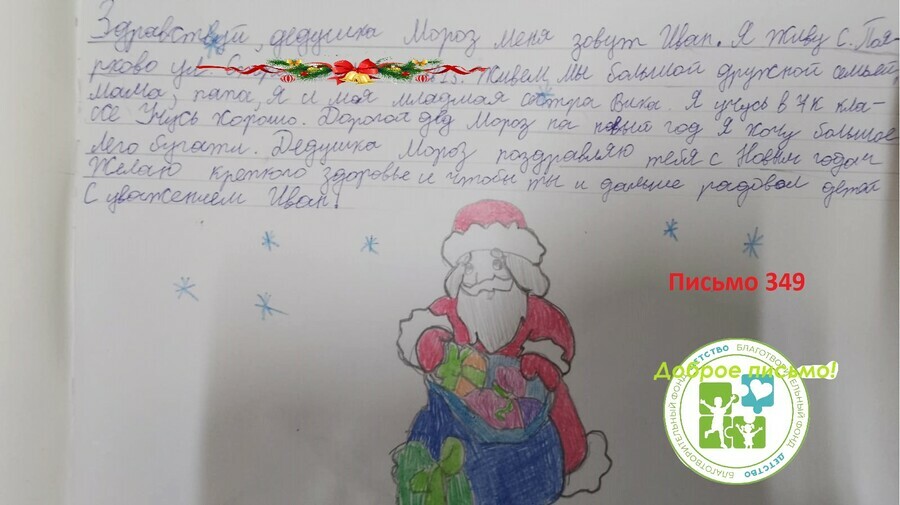 Здравствуй, дедушка Мороз меня зовут Иван. Я живу с. Поя-
рково ул. живем мы большой дружной семьей
мама, папа, я и моя младмая сестра Вика. Я учусь в 7К кла-
ссе Учусь хорошо. Дорогой дед Мороз на новый год Я хочу большое
лего бугатти. Дедушка Мороз поздравляю тебя с Новым годом
Желаю крепкого здоровье и чтобы ты и дальше радовал детей
С уважением Иван!
Письмо 349
Доброе письмо!
БЛАГОТВОРИТЕЛЬНЫЙ ФОНД ДЕТСТВО
БЛАГОТВОРИТЕЛЬНЫЙ ФОНД ДЕТСТВО